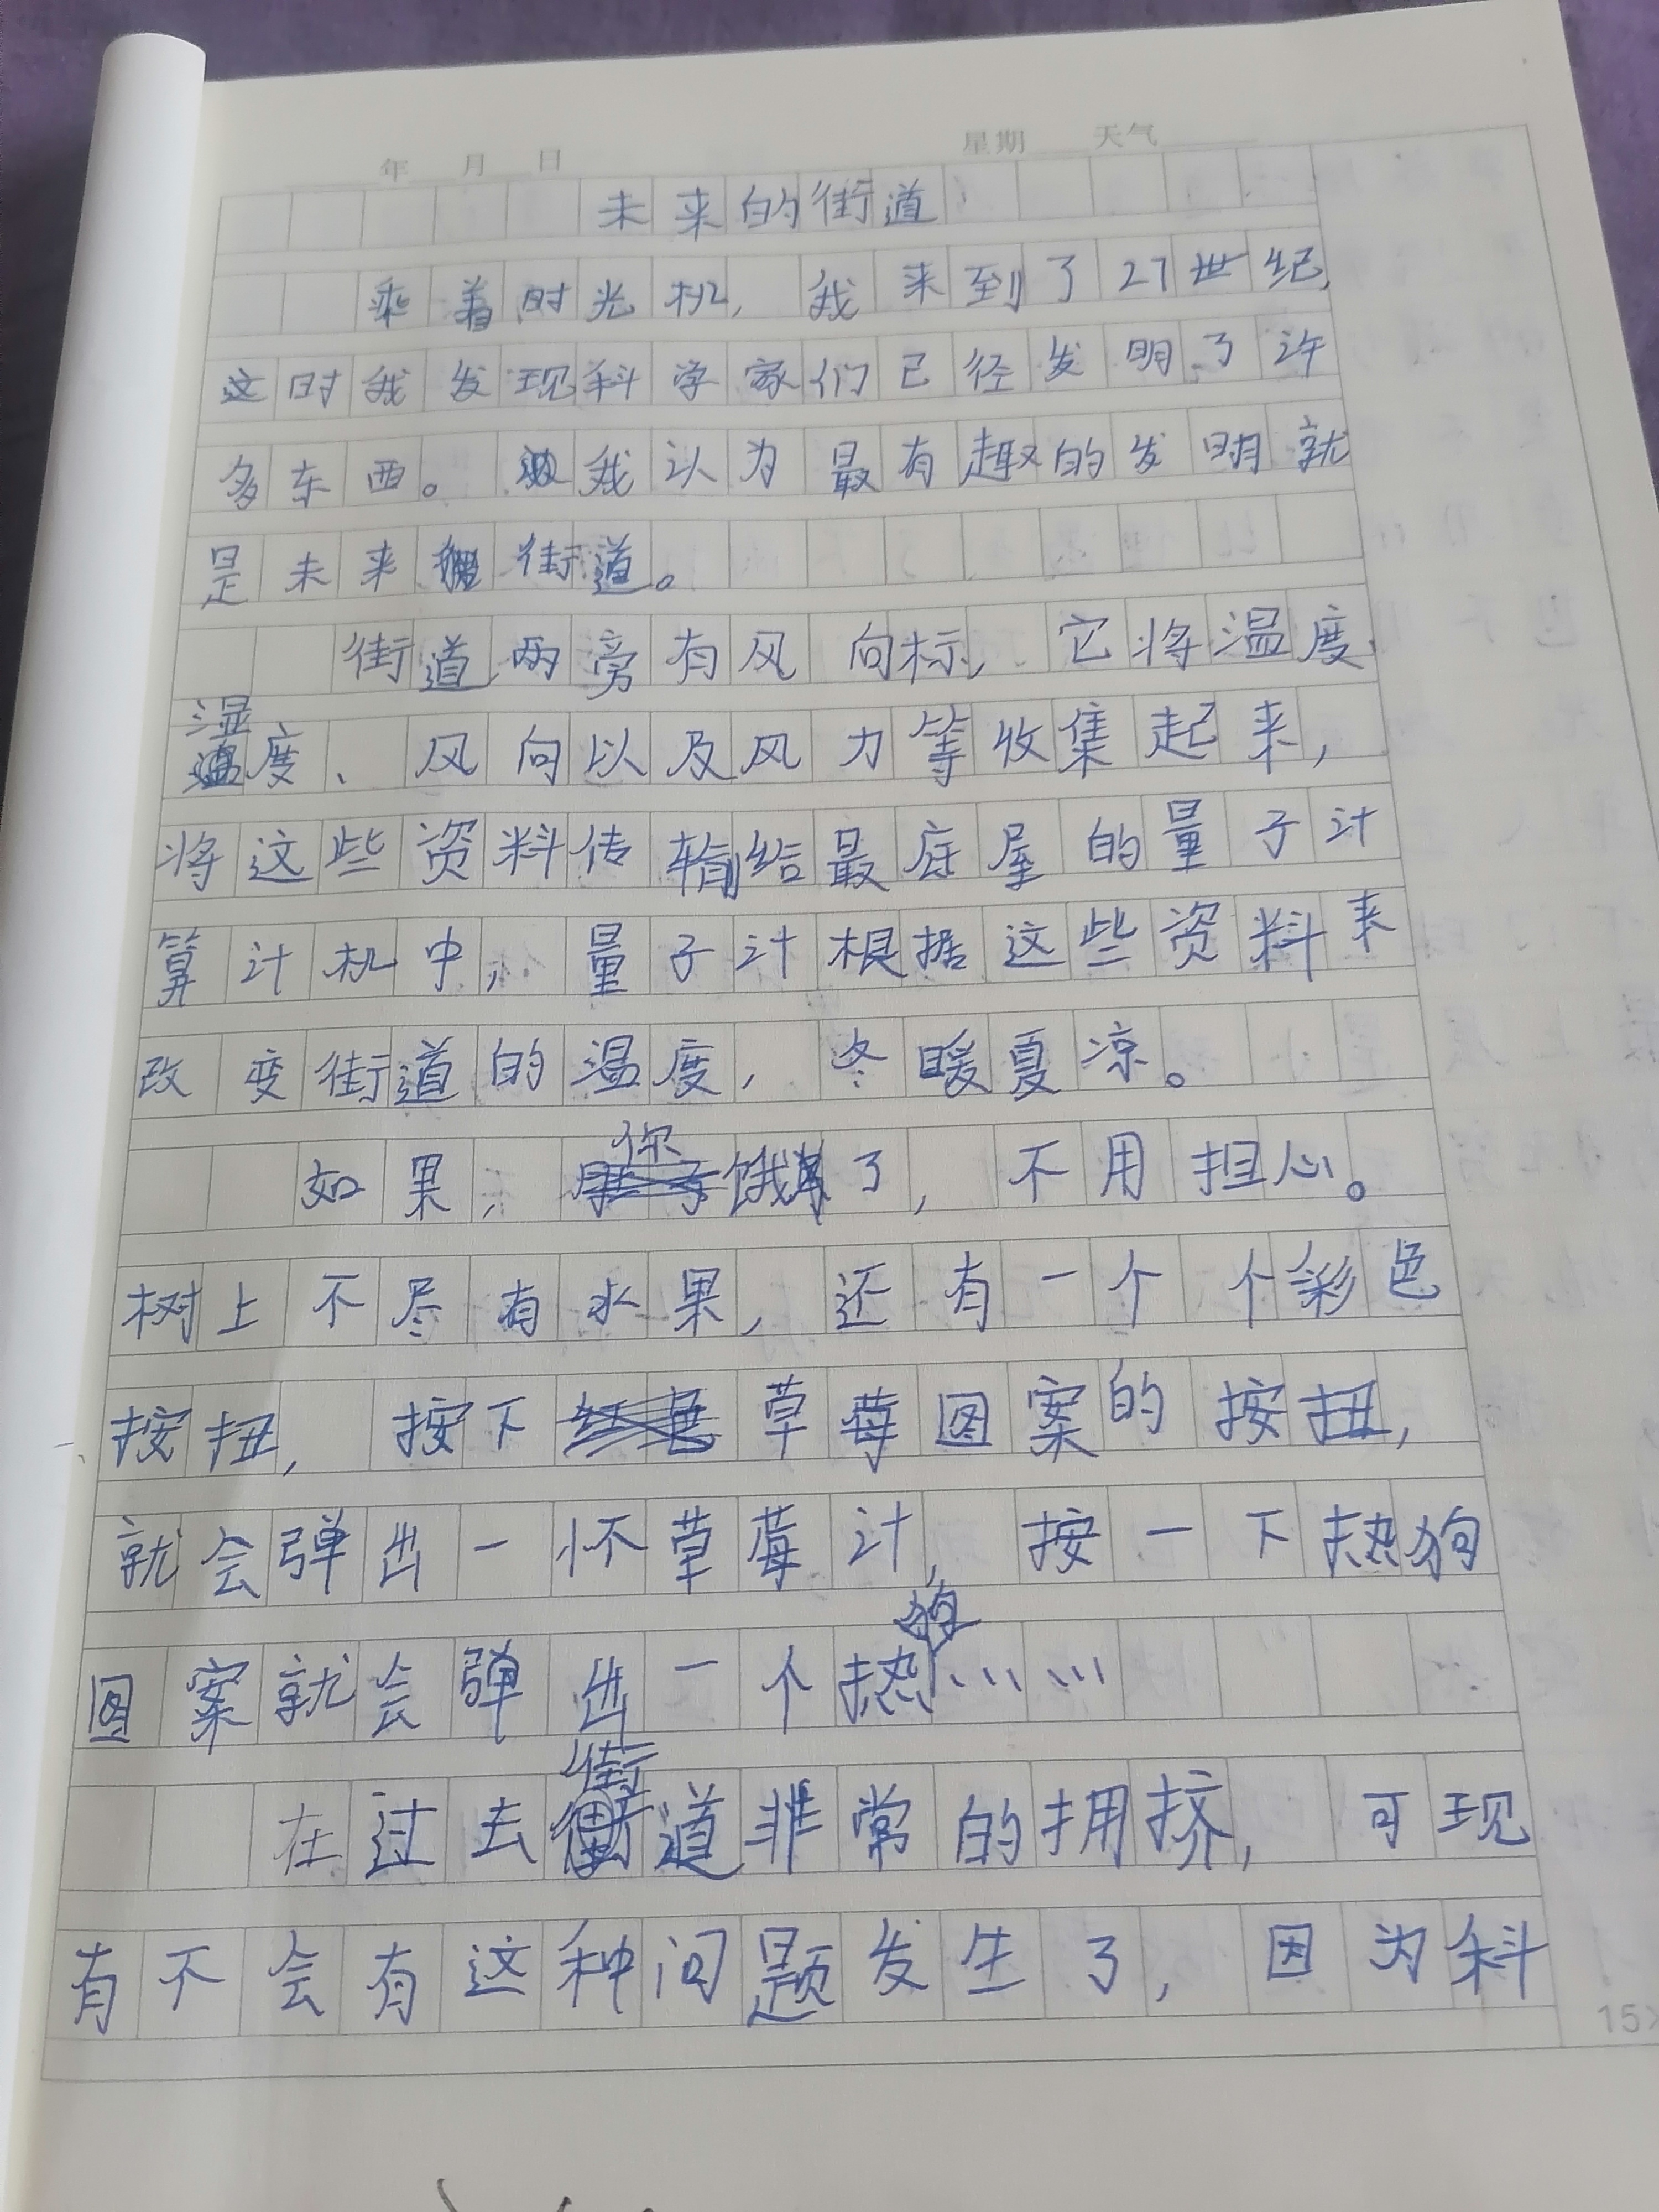 年 月 日 星期 天气
未来的街道
乘着时光机，我来到了27世纪，
这时我发现科学家们已经发明了许
多东西。我认为最有趣的发明就
是未来街道。
街道两旁有风向标，它将温度、
湿度、风向以及风力等收集起来，
将这些资料传输给最底屋的量子计
算计机中，量子计根据这些资料来
改变街道的温度，冬暖夏凉。
如果，你饿了，不用担心。
树上不尽有水果，还有一个个彩色
按扭，按下草莓图案的按扭，
就会弹出一怀草莓计，按一下热狗
图案就会弹出一个热狗……
在过去街道非常的拥挤，可现
有不会有这种问题发生了，因为科
15×